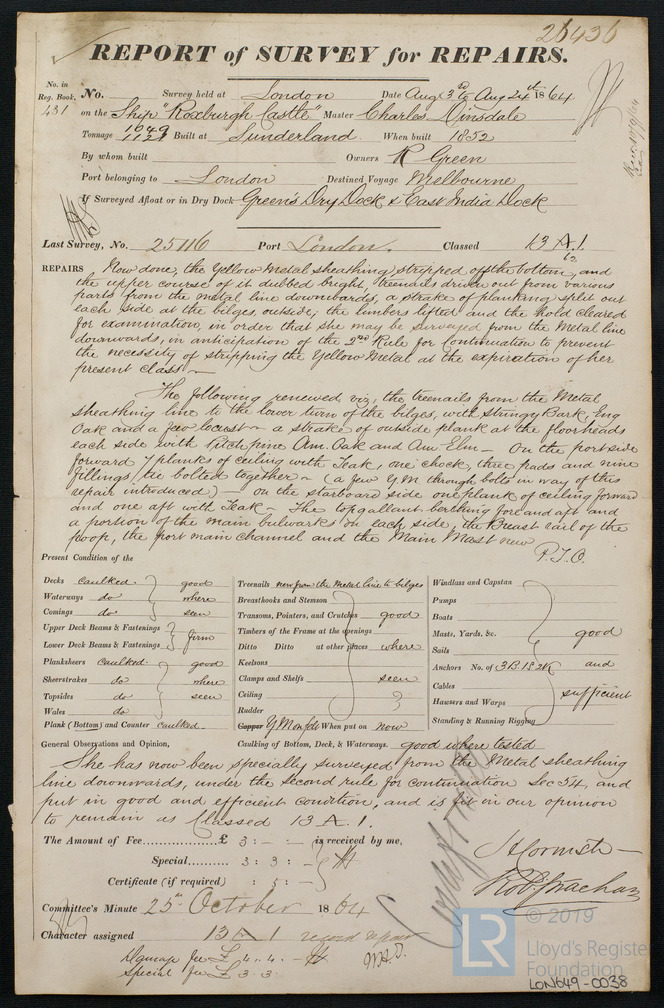 26436
REPORT of SURVEY for REPAIRS.
No. in Reg. Book, 431
No. Survey held at London Date Aug 3rd to Aug 24th 1864
on the Ship "Roxburgh Castle" Master Charles Dinsdale
Tonnage 1649 1121 Built at Sunderland When built 1852
By whom built Owners R Green
Port belonging to London Destined Voyage Melbourne
If Surveyed Afloat or in Dry Dock Green's Dry Dock & East India Dock
Last Survey, No. 25116 Port London. Classed 13 A.1.
REPAIRS Now done, the Yellow Metal sheathing stripped off the bottom, and
the upper course of it dubbed bright, treenails driven out from various
parts from the metal line downwards, a strake of planking split out
each side at the bilges, outside; the limbers lifted and the hold cleared
for examination, in order that she may be surveyed from the Metal line
downwards, in anticipation of the 2nd Rule for Continuation to prevent
the necessity of stripping the Yellow Metal at the expiration of her
present class —
The following renewed viz, the treenails from the Metal
sheathing line to the lower turn of the bilges, with Stringy Bark, Eng
Oak and a few locust — a strake of outside plank at the floorheads
each side with Pitch pine Am. Oak and Am Elm — On the port side
forward 7 planks of ceiling with Teak, one chock, three pads and nine
fillings, tie bolted together — (a few Y.M through bolts in way of this
repair introduced) — on the starboard side one plank of ceiling forward
and one aft with Teak — The topgallant berthing fore and aft and
a portion of the main bulwarks on each side, the Breast rail of the
poop, the port main channel and the Main Mast new
P.T.O.
Present Condition of the
Decks caulked good
Waterways do where
Comings do seen
Upper Deck Beams & Fastenings
Lower Deck Beams & Fastenings firm
Planksheers caulked. good
Sheerstrakes do where
Topsides do seen
Wales do
Plank (Bottom) and Counter caulked.
Treenails new from the Metal line to bilges
Breasthooks and Stemson
Transoms, Pointers, and Crutches good
Timbers of the Frame at the openings
Ditto Ditto at other places where
Keelsons
Clamps and Shelfs seen
Ceiling
Rudder
Copper Y M on felt When put on now
Windlass and Capstan
Pumps
Boats
Masts, Yards, &c. good
Sails
Anchors No. of 3B.1S.2K and
Cables
Hawsers and Warps sufficient
Standing & Running Rigging
General Observations and Opinion, Caulking of Bottom, Deck, & Waterways. good where tested
She has now been specially surveyed from the Metal sheathing
line downwards, under the second rule for continuation Sec 54, and
put in good and efficient condition, and is fit in our opinion
to remain as Classed 13 A.1.
The Amount of Fee £ 3 : – : – is received by me,
Special 3 : 3 : –
Certificate (if required) : 5 : –
Committee's Minute 25th October 1864
Character assigned 13 A 1
Damage fee £ 4. 4. –
Special fee £ 3. 3.
© 2019
LR
Lloyd's Register
Foundation
LON649-0038